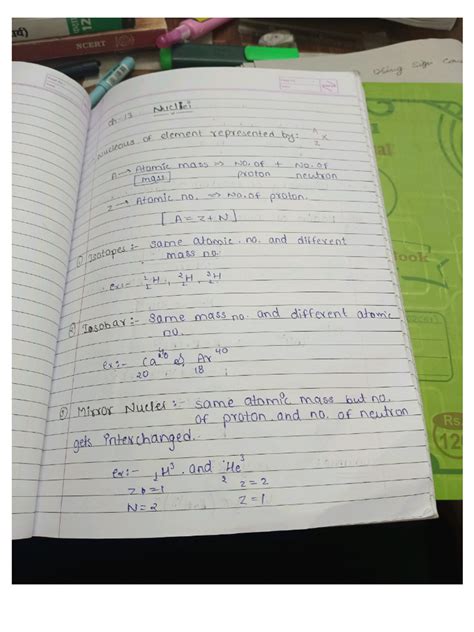 NCERT
Using sign
ch 13 Nuclei
Nucleous of element represented by: A Z X
A → Atomic mass => No. of + No. of
[mass] proton neutron
Z → Atomic no. => No. of proton.
[A = Z + N]
① Isotopes :- Same atomic no. and different
mass no.
ex:- ¹₁H, ²₁H, ³₁H
② Isobar :- Same mass no. and different atomic
no.
ex:- ₂₀Ca⁴⁰ & ₁₈Ar⁴⁰
Mirror Nuclei :- same atomic mass but no.
of proton and no. of neutron
gets interchanged.
ex:- ₁H³ and ₂He³
Z = 1 Z = 2
N = 2 Z = 1
ook
Rs